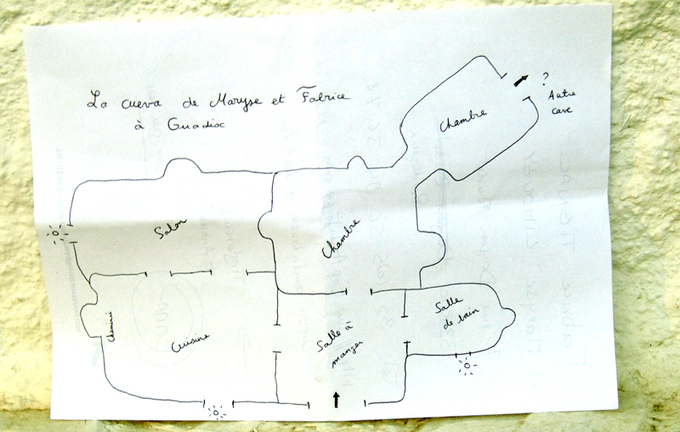 La cueva de Maryse et Fabrice
à Guadix
?
Autre
cave
Chambre
Salon
Chambre
Cheminée
Cuisine
Salle à
manger
Salle
de bain